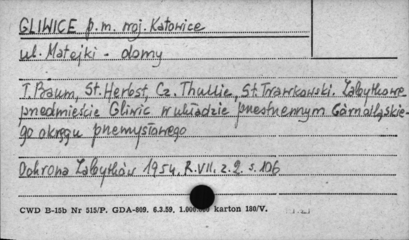 GLIWICE p.m. woj. Katowice
ul. Matejki - domy
T. Braum, St. Herbst, Cz. Thullie, St. Trawkowski. Zabytkowe
przedmieście Gliwic w układzie przestrzennym Górnośląskie-
go okręgu przemysłowego
Ochrona Zabytków 1954, R. VII, z. 2. s. 106
CWD B-15b Nr 515/P. GDA-809. 6.3.59. 1.000.000 karton 180/V.